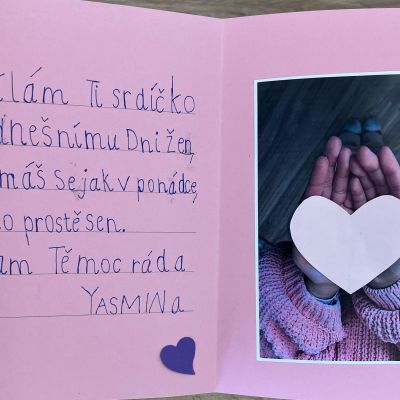 ílám Ti srdíčko
dnešnímu Dni žen,
máš se jak v ponádce,
o prostě sen.
am Tě moc ráda
YASMINa